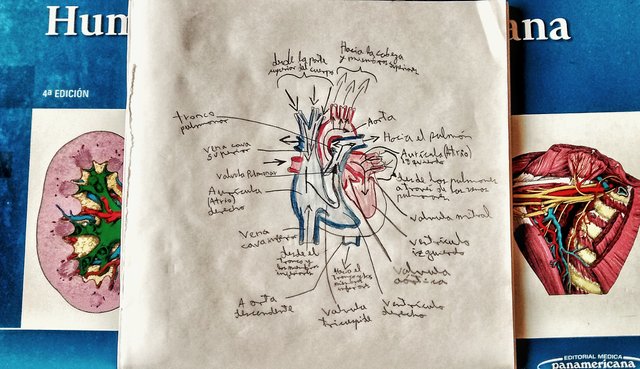 Hum
ana
4ª EDICIÓN
desde la parte
superior del cuerpo
Hacia la cabeza
y miembros superiores
tronco
pulmonar
Aorta
Hacia el pulmón
vena cava
superior
Aurícula (Atrio)
izquierdo
valvula Pulmonar
desde los pulmones
a través de las venas
pulmonares
Aurícula
(Atrio)
derecho
valvula mitral
vena
cava inferior
ventrículo
izquierdo
desde el
tronco y
los miembros
inferiores
Hacia el
tronco y los
miembros
inferiores
valvula
aortica
Aorta
descendente
valvula
tricuspide
ventrículo
derecho
EDITORIAL MEDICA
panamericana